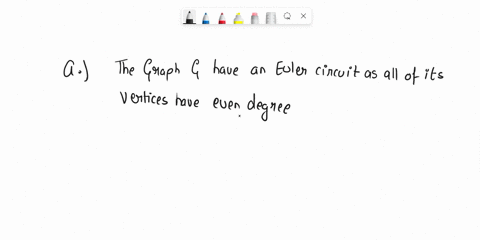 a.) The Graph G have an Euler circuit as all of its
vertices have even degree